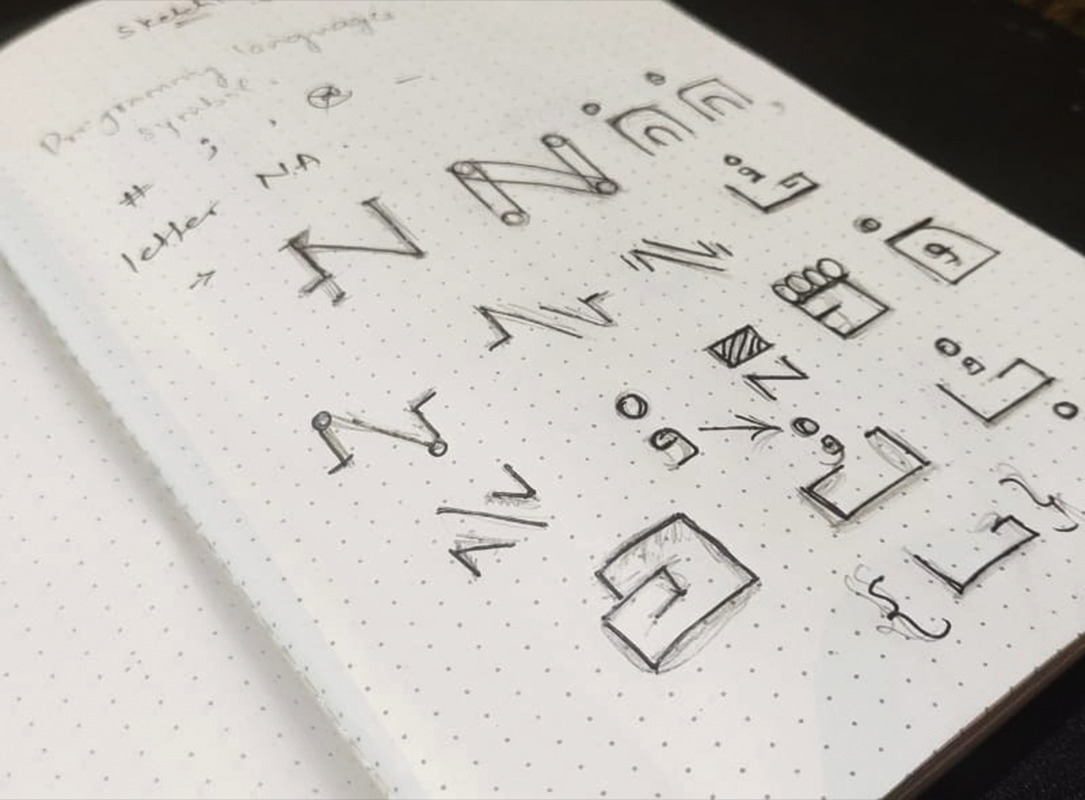 Sketch
Programming languages
symbol
; , ⊗ –
#
letter N.A.
→
N N
N
N
{ }